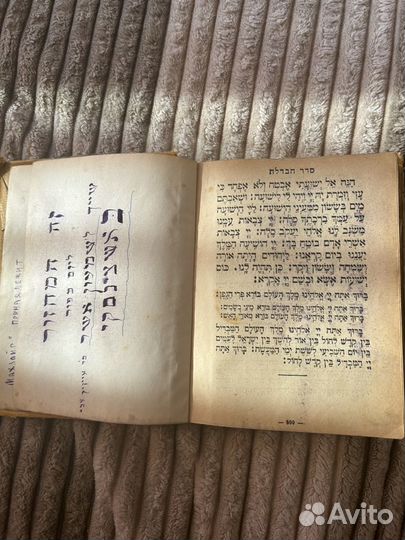 принадлежит
זה המחזור
ליום כפור
שייך
אשר
סדר הבדלה
הנה אל ישועתי אבטח ולא אפחד כי
עזי וזמרת יה יי ויהי לי לישועה: ושאבתם
מים בששון ממעיני הישועה: ליי הישועה
על עמך ברכתך סלה: יי צבאות עמנו
משגב לנו אלהי יעקב סלה: יי צבאות
אשרי אדם בוטח בך: יי הושיעה המלך
יעננו ביום קראנו: ליהודים היתה אורה
ושמחה וששון ויקר: כן תהיה לנו. כוס
ישועות אשא ובשם יי אקרא:
ברוך אתה יי אלהינו מלך העולם בורא פרי הגפן:
ברוך אתה יי אלהינו מלך העולם בורא מיני בשמים:
ברוך אתה יי אלהינו מלך העולם בורא מאורי האש:
ברוך אתה יי אלהינו מלך העולם המבדיל
בין קדש לחול בין אור לחשך בין ישראל לעמים
בין יום השביעי לששת ימי המעשה: ברוך אתה
יי המבדיל בין קדש לחול:
— 600 —
Avito